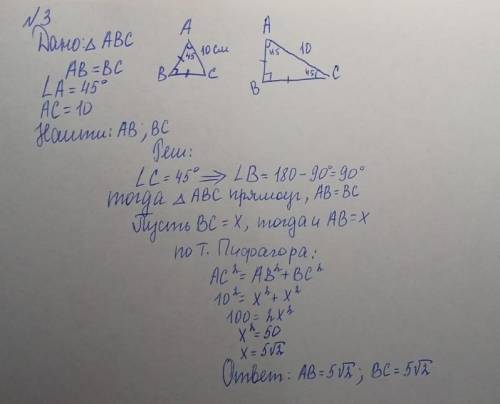 №3
Дано: △ ABC
AB = BC
∠A = 45°
AC = 10
Найти: AB; BC
A
45
10 см
B
C
A
45
10
45
B
C
Реш:
∠C = 45° ⟹ ∠B = 180 - 90° = 90°
тогда △ ABC прямоуг, AB = BC
Пусть BC = x, тогда и AB = x
по Т. Пифагора:
AC² = AB² + BC²
10² = x² + x²
100 = 2x²
x² = 50
x = 5√2
Ответ: AB = 5√2; BC = 5√2